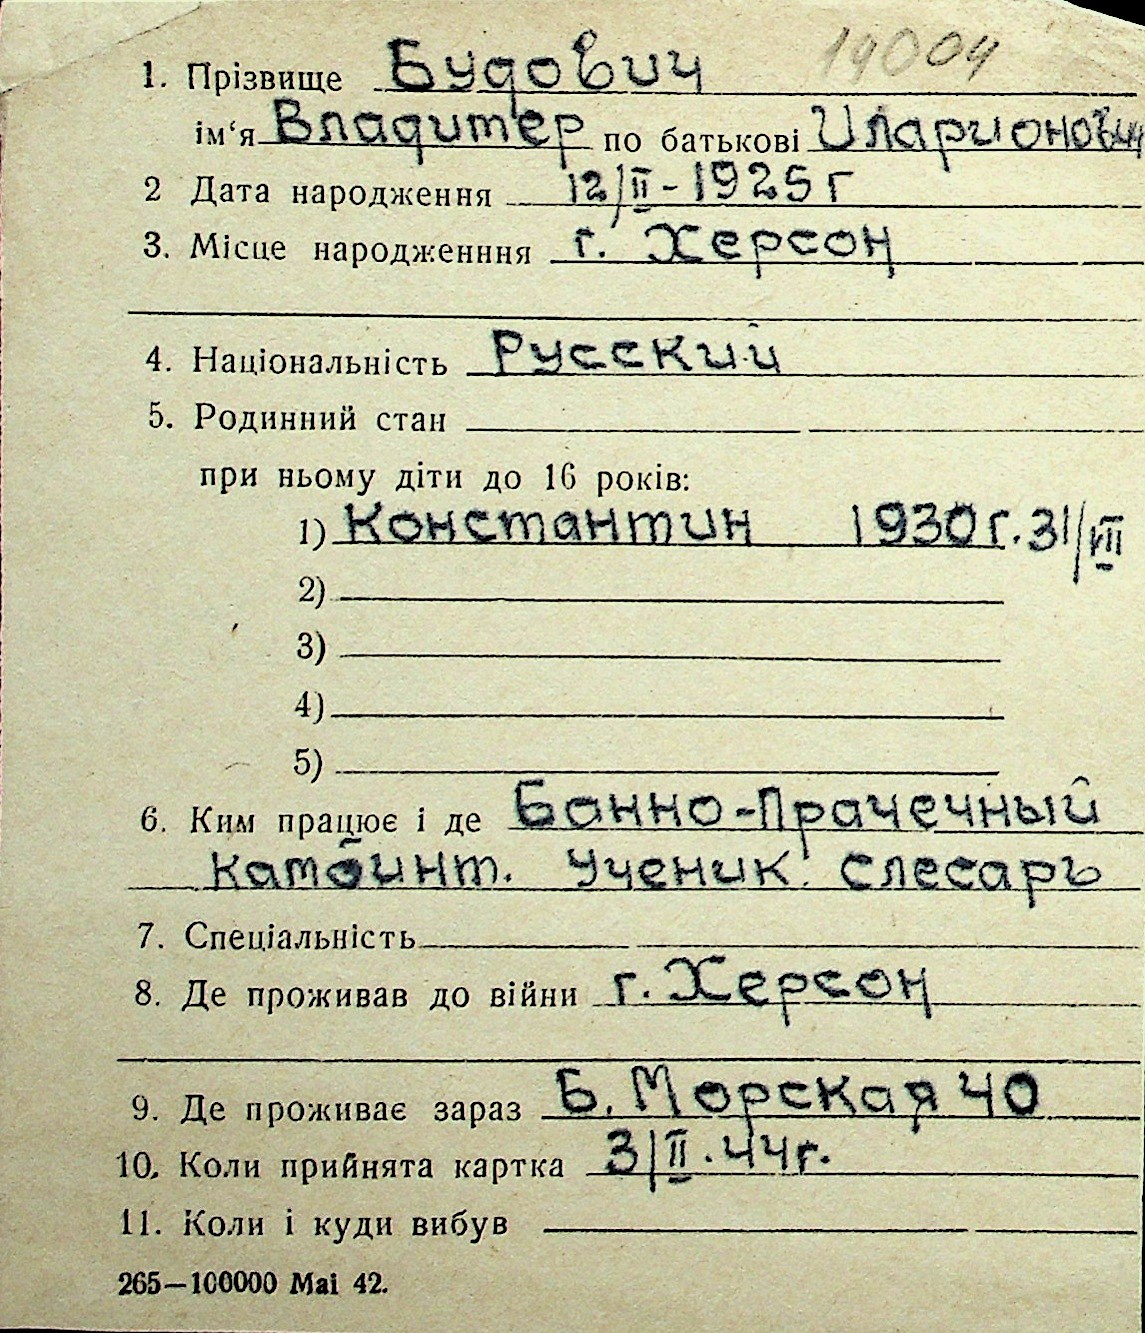 19004
1. Прізвище Будович
ім‘я Владимер по батькові Иларионович
2 Дата народження 12/II - 1925 г
3. Місце народженння г. Херсон
4. Національність Русский
5. Родинний стан
при ньому діти до 16 років:
1) Константин 1930 г. 31/VIII
2)
3)
4)
5)
6. Ким працює і де Банно-Прачечный
комбинт. Ученик слесарь
7. Спеціальність
8. Де проживав до війни г. Херсон
9. Де проживає зараз Б. Морская 40
10. Коли прийнята картка 3/II. 44 г.
11. Коли і куди вибув
265—100000 Mai 42.